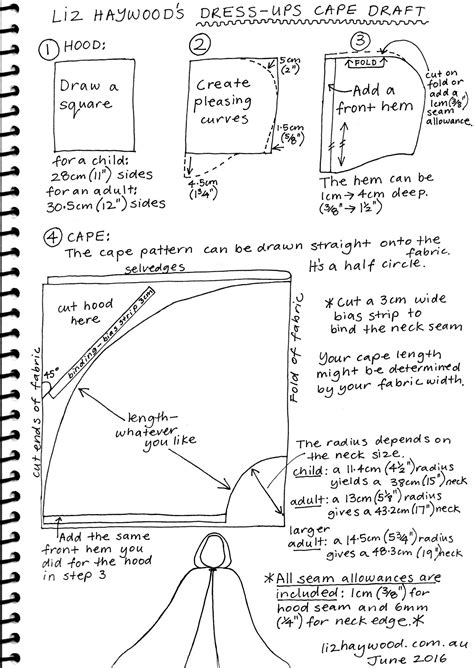 LIZ HAYWOOD'S DRESS-UPS CAPE DRAFT
1 HOOD:
Draw a
square
for a child:
28cm (11") sides
for an adult:
30.5cm (12") sides
2
Create
pleasing
curves
5cm
(2")
1.5cm
(5/8")
4.5cm
(1 3/4")
3
FOLD
Add a
front hem
cut on
fold or
add a
1cm (3/8")
seam
allowance.
The hem can be
1cm → 4cm deep.
(3/8" → 1 1/2")
4 CAPE:
The cape pattern can be drawn straight onto the
fabric.
It's a half circle.
selvedges
cut hood
here
binding - bias strip 3cm
45°
cut ends of fabric
Fold of fabric
length-
whatever
you like
Add the same
front hem you
did for the hood
in step 3
*Cut a 3cm wide
bias strip to
bind the neck seam
Your cape length
might be determined
by your fabric width.
The radius depends on
the neck size.
child: a 11.4cm (4 1/2") radius
yields a 38cm (15") neck
adult: a 13cm (5 1/8") radius
gives a 43.2cm (17") neck
larger
adult: a 14.5cm (5 3/4") radius
gives a 48.3cm (19") neck
*All seam allowances are
included: 1cm (3/8") for
hood seam and 6mm
(1/4") for neck edge.*
lizhaywood.com.au
June 2016